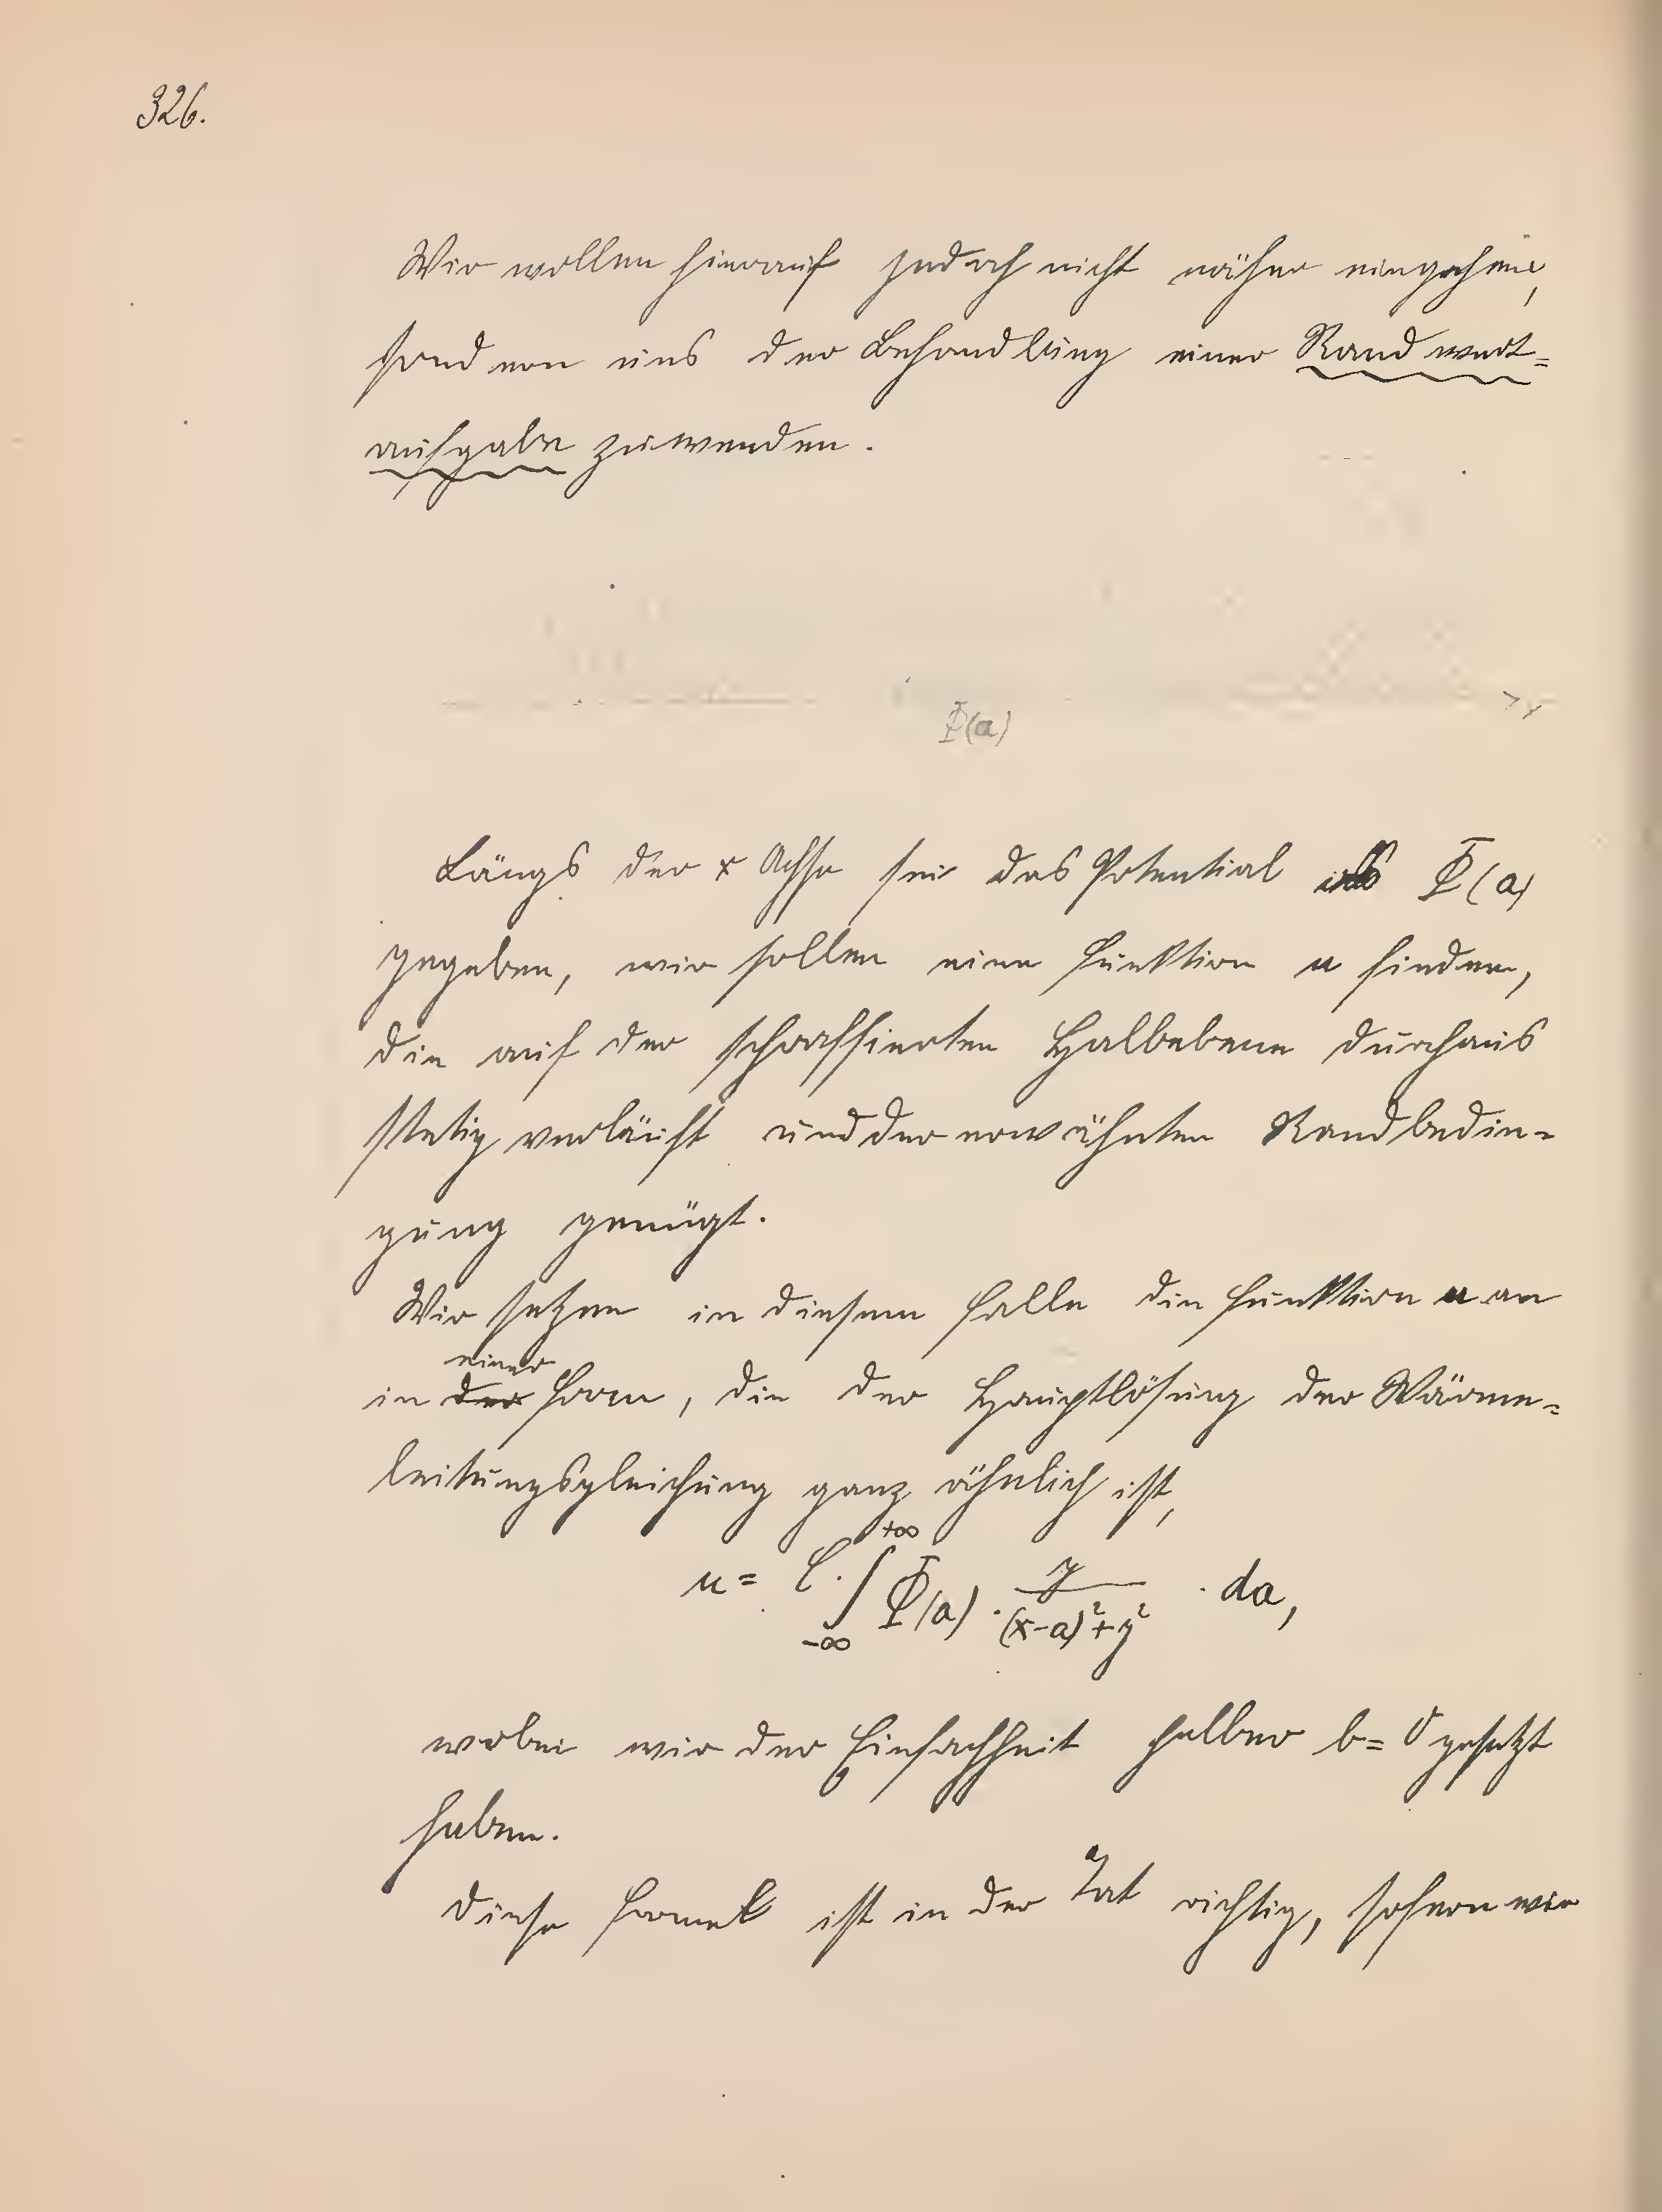 326.
Wir wollen hierauf jedoch nicht näher eingehen,
sondern uns der Behandlung einer Randwert=
aufgabe zuwenden.
Φ(a)
Längs der x Achse sei das Potential als Φ(a)
gegeben, wir sollen eine Funktion u finden,
die auf der schraffierten Halbebene durchaus
stetig verläuft und der erwähnten Randbedin=
gung genügt.
Wir setzen in diesem Falle die Funktion u an
einer
in der Form, die der Hauptlösung der Wärme=
leitungsgleichung ganz ähnlich ist,
u = C · ∫_{-∞}^{+∞} Φ(a) · y/((x-a)²+y²) · da,
wobei wir der Einfachheit halber b=0 gesetzt
haben.
Diese Formel ist in der Tat richtig, sofern wir